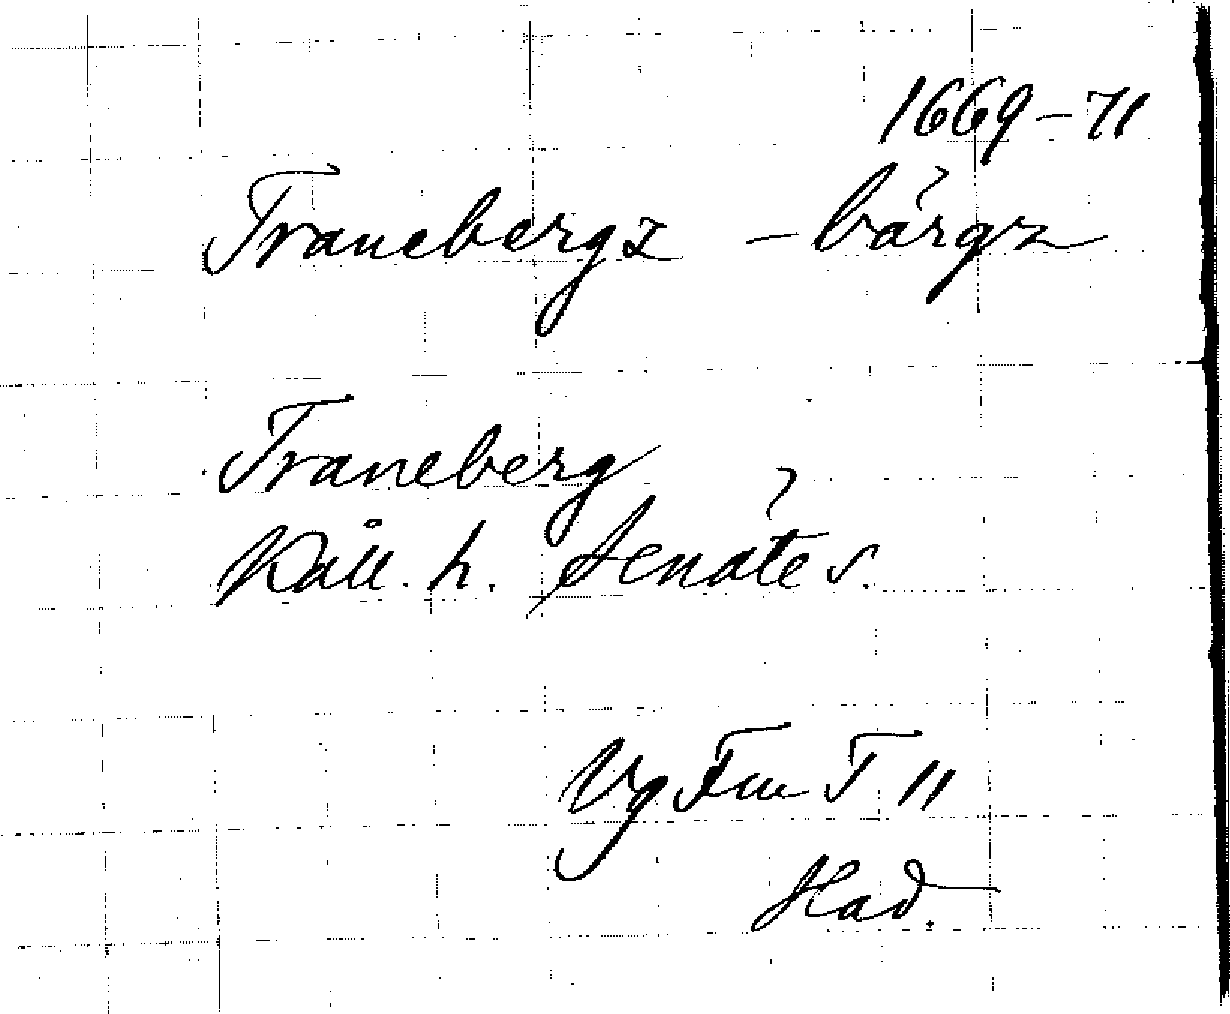 1669-71
Tranebergz -bärgz
Traneberg
Kåll. h. Senäte s.
Vg Fm T 11
Had.